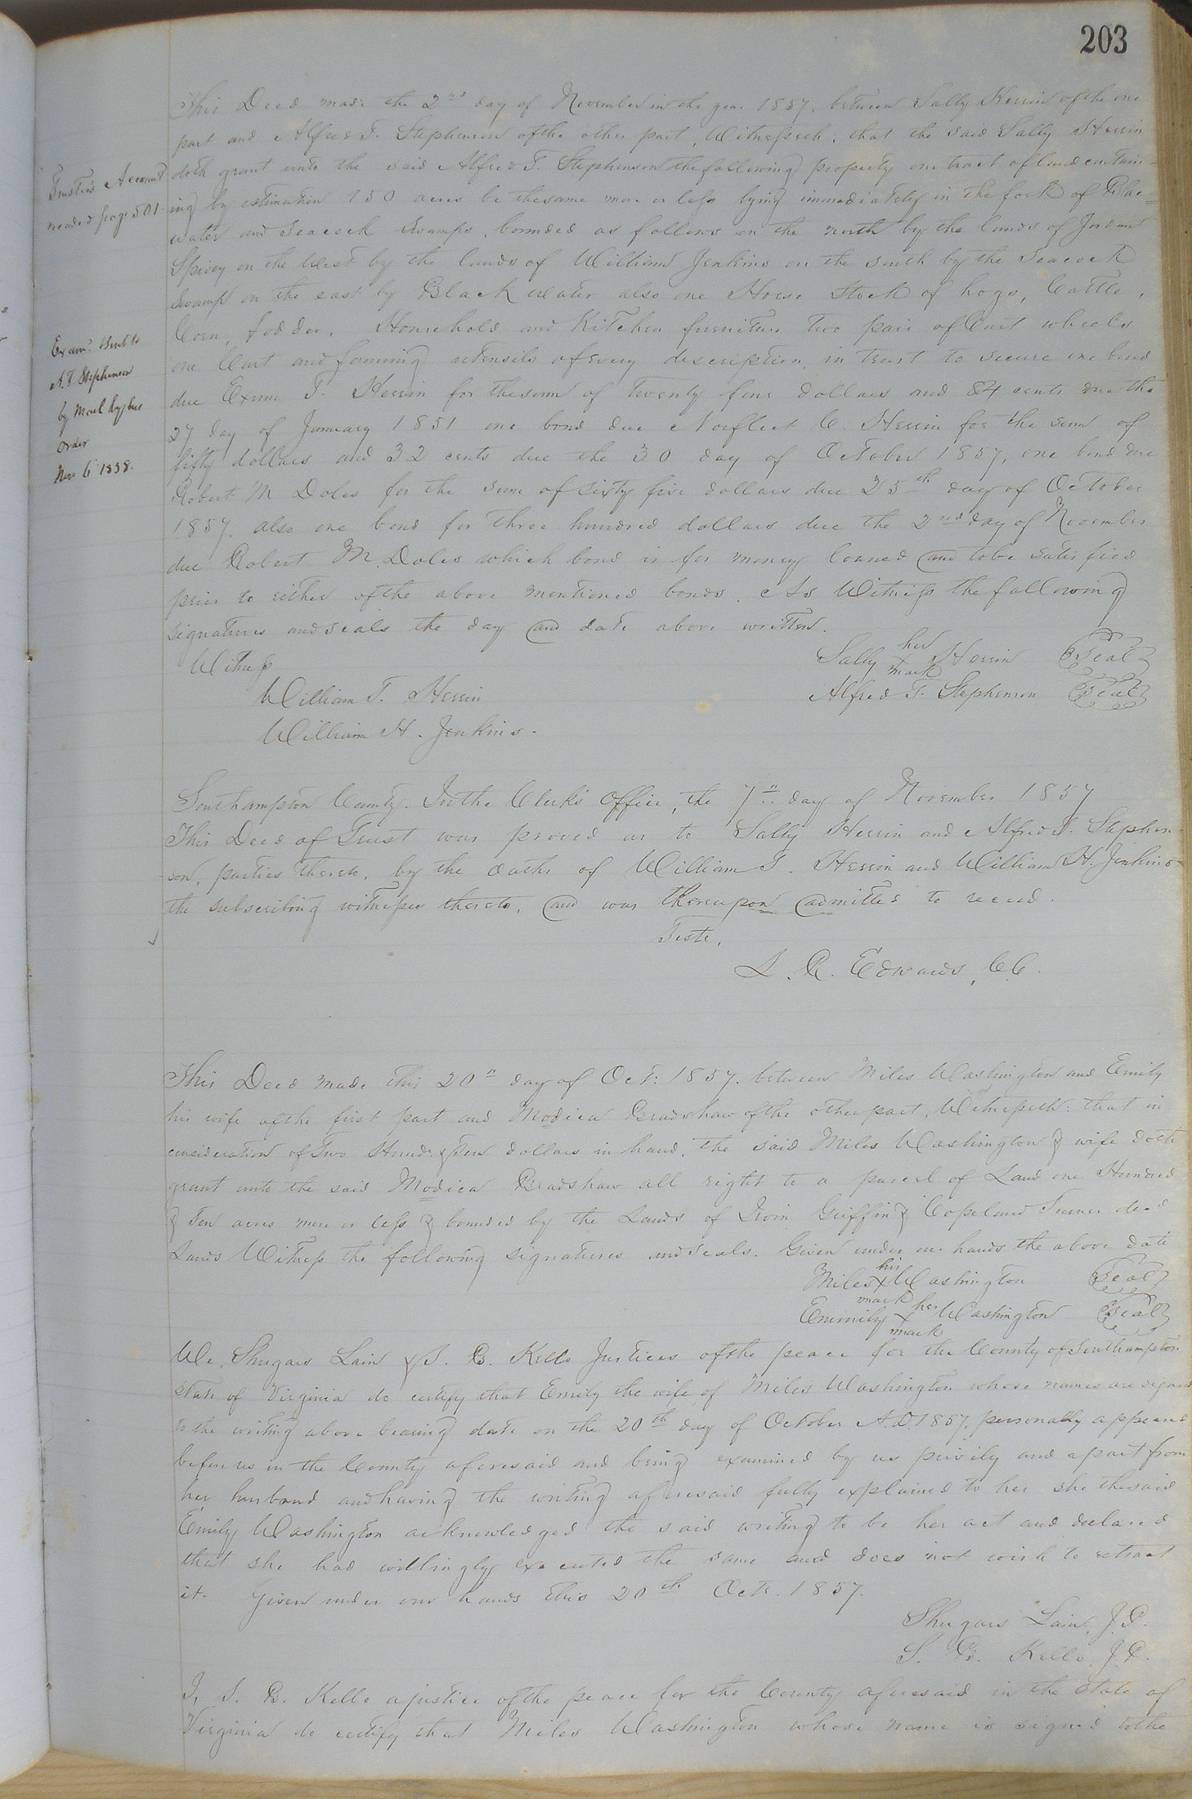 203
This Deed made the 2nd day of November in the year 1857, between Sally Herrin of the one
part and Alfred T. Stephenson of the other part, Witnesseth, that the said Sally Herrin
doth grant unto the said Alfred T. Stephenson the following property one tract of land contain-
ing by estimation 150 acres be the same more or less lying immediately in the fork of Black
water and Seacock Swamps, bounded as follows on the north by the lands of Jordan
Spivey on the West by the lands of William Jenkins on the south by the Seacock
Swamp on the east by Black water also one Horse Stock of hogs, Cattle,
Corn, fodder, Household and Kitchen furniture two pair of Cart wheels
one Cart and farming utensils of every description, in trust to secure one bond
due Exum T. Herrin for the sum of Twenty four dollars and 84 cents due the
27 day of January 1851 one bond due Norfleet C. Herrin for the sum of
fifty dollars and 32 cents due the 30 day of October 1857, one bond due
Robert M Doles for the sum of sixty five dollars due 25th day of October
1857. also one bond for three hundred dollars due the 2nd day of November
due Robert M Doles which bond is for money loaned and to be satisfied
prior to either of the above mentioned bonds. As Witness the following
signatures and seals the day and date above written.
Witness
Sally her mark Herrin Seal
William T. Herrin
Alfred T. Stephenson Seal
William H. Jenkins.
Trustees Account
recorded page 501
Exam: Sent to
A.T. Stephenson
by Mail by his
Order
Nov 6 1858.
Southampton County. In the Clerk's Office, the 7th day of November 1857
This Deed of Trust was proved as to Sally Herrin and Alfred T. Stephen-
son, parties thereto, by the oaths of William T. Herrin and William H. Jenkins
the subscribing witnesses thereto, and was thereupon admitted to record.
Teste,
L. R. Edwards, C.C.
This Deed made this 20th day of Oct: 1857. between Miles Washington and Emily
his wife of the first part and Modica Bradshaw of the other part, Witnesseth: that in
consideration of Two Hund. & Ten dollars in hand, the said Miles Washington & wife doth
grant unto the said Modica Bradshaw all right to a parcel of Land one Hundred
& Ten acres more or less & bounded by the Lands of Irvin Griffin & Copeland Turner decd
Lands Witness the following signatures and seals. Given under our hands the above date
Miles his mark Washington Seal
Emmily her mark Washington Seal
We, Shugars Lain & S. B. Kello Justices of the peace for the County of Southampton
State of Virginia do certify that Emily the wife of Miles Washington whose names are signed
to the writing above bearing date on the 20th day of October A.D. 1857, personally appeared
before us in the County aforesaid and being examined by us privily and apart from
her husband and having the writing aforesaid fully explained to her she the said
Emily Washington acknowledged the said writing to be her act and declared
that she had willingly executed the same and does not wish to retract
it. Given under our hands this 20th Octr. 1857.
Shugars Lain, J.P.
S. B. Kello, J.P.
I, S. B. Kello a justice of the peace for the County aforesaid in the State of
Virginia do certify that Miles Washington whose name is signed to the